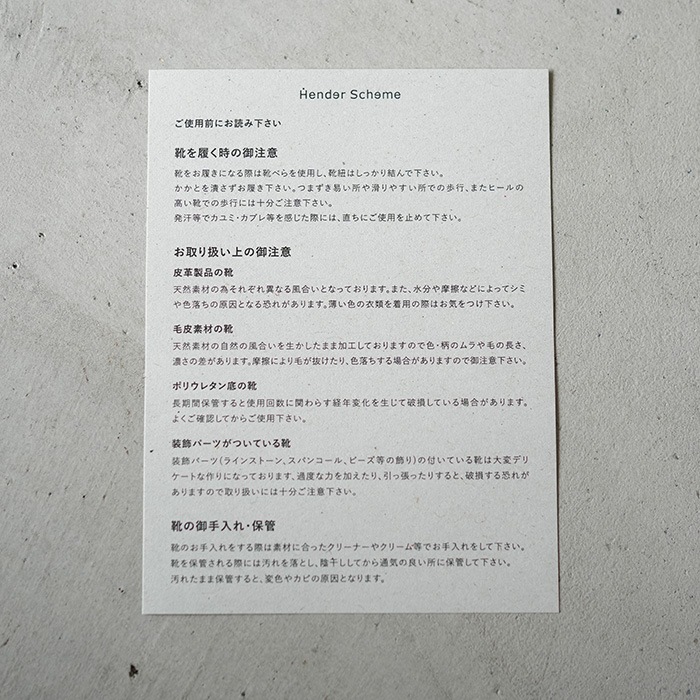 Hender Scheme
ご使用前にお読み下さい
靴を履く時の御注意
靴をお履きになる際は靴べらを使用し、靴紐はしっかり結んで下さい。
かかとを潰さずお履き下さい。つまずき易い所や滑りやすい所での歩行、またヒールの
高い靴での歩行には十分ご注意下さい。
発汗等でカユミ・カブレ等を感じた際には、直ちにご使用を止めて下さい。
お取り扱い上の御注意
皮革製品の靴
天然素材の為それぞれ異なる風合いとなっております。また、水分や摩擦などによってシミ
や色落ちの原因となる恐れがあります。薄い色の衣類を着用の際はお気をつけ下さい。
毛皮素材の靴
天然素材の自然の風合いを生かしたまま加工しておりますので色・柄のムラや毛の長さ、
濃さの差があります。摩擦により毛が抜けたり、色落ちする場合がありますので御注意下さい。
ポリウレタン底の靴
長期間保管すると使用回数に関わらす経年変化を生じて破損している場合があります。
よくご確認してからご使用下さい。
装飾パーツがついている靴
装飾パーツ(ラインストーン、スパンコール、ビーズ等の飾り)の付いている靴は大変デリ
ケートな作りになっております、過度な力を加えたり、引っ張ったりすると、破損する恐れが
ありますので取り扱いには十分ご注意下さい。
靴の御手入れ・保管
靴のお手入れをする際は素材に合ったクリーナーやクリーム等でお手入れをして下さい。
靴を保管される際には汚れを落とし、陰干ししてから通気の良い所に保管して下さい。
汚れたまま保管すると、変色やカビの原因となります。